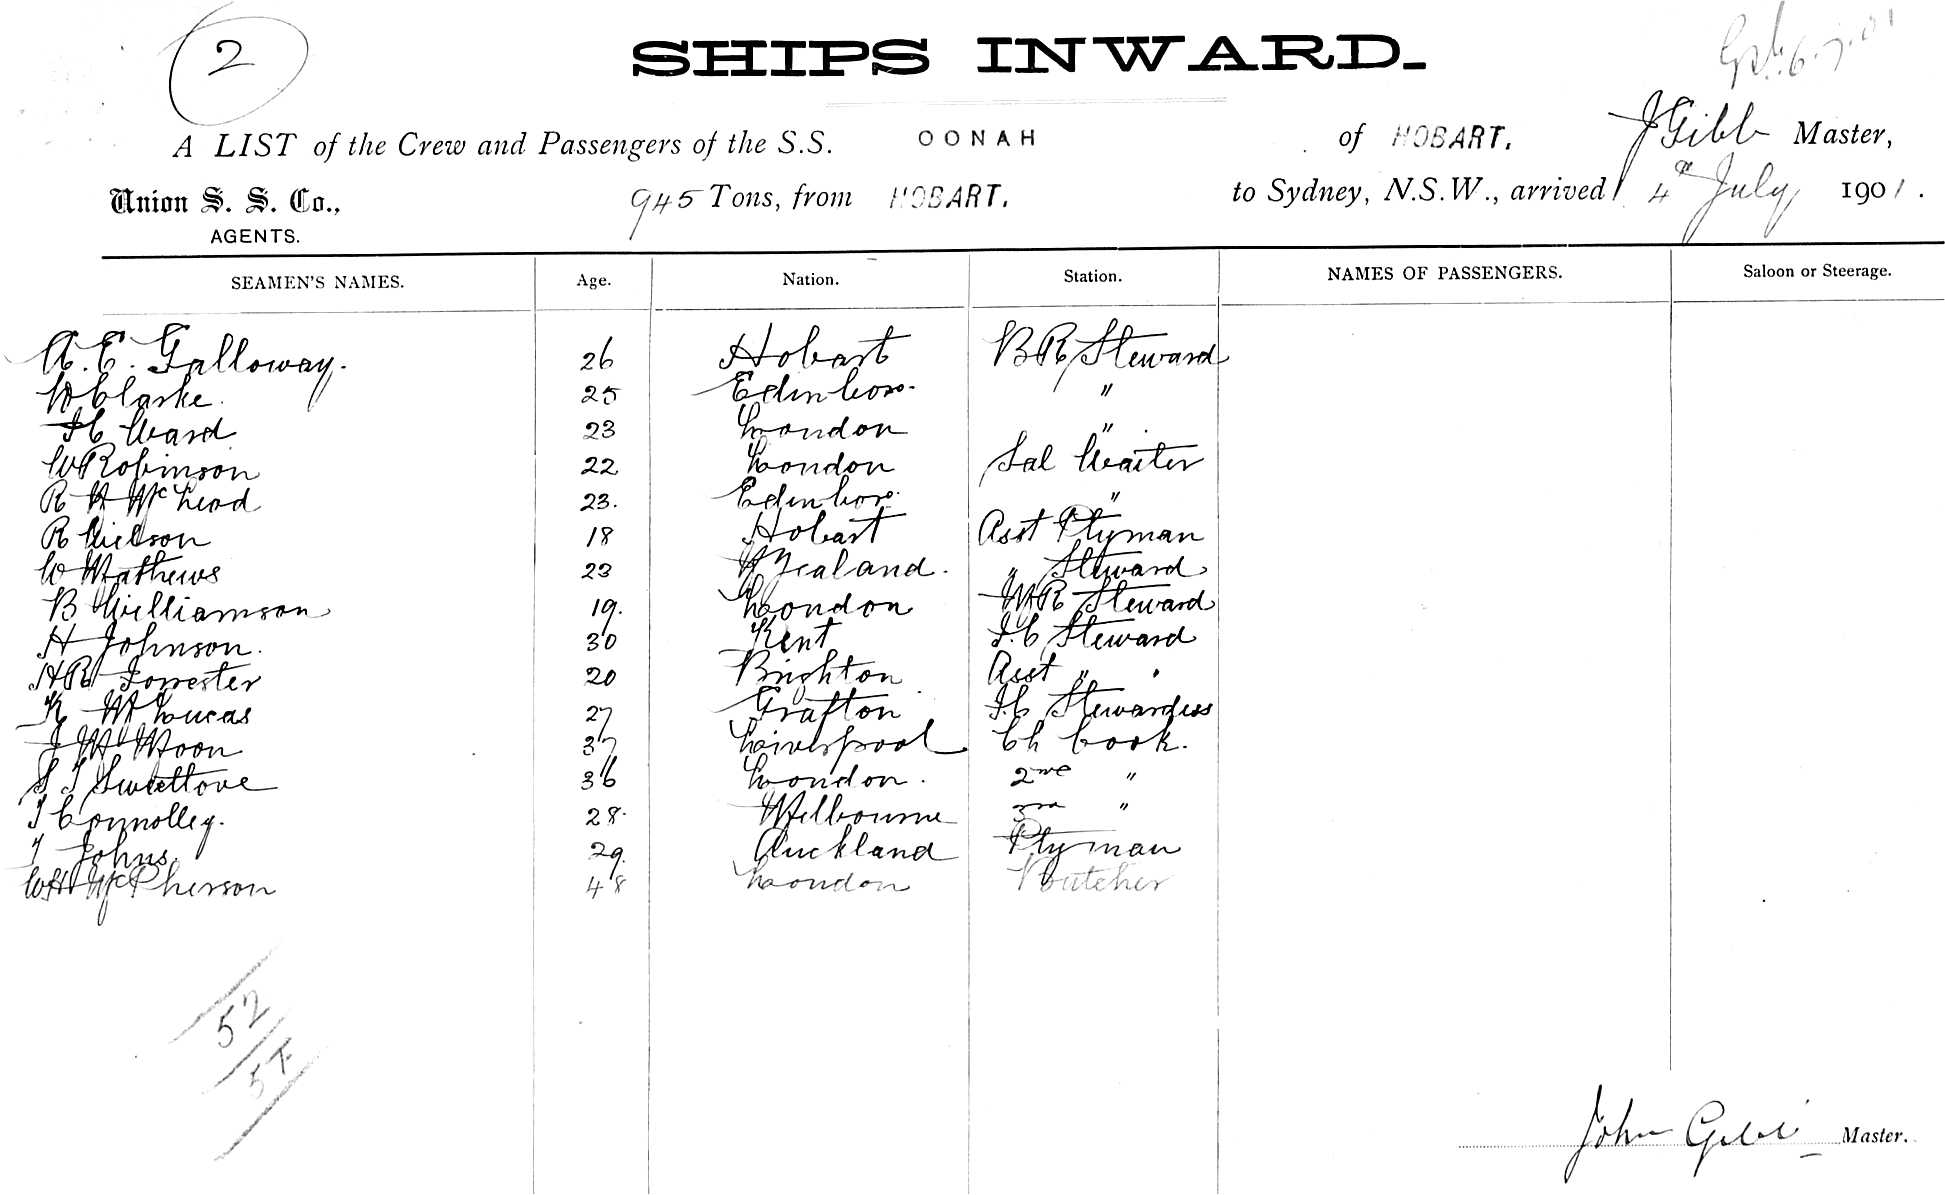 2
SHIPS INWARD.
A LIST of the Crew and Passengers of the S.S. OONAH of HOBART. J Gibb Master,
Union S. S. Co., 945 Tons, from HOBART. to Sydney, N.S.W., arrived 4th July 1901.
AGENTS.
SEAMEN'S NAMES. Age. Nation. Station. NAMES OF PASSENGERS. Saloon or Steerage.
A. E. Galloway. 26 Hobart BR Steward
W Clarke. 25 Edinboro. "
H C Ward 23 London "
W Robinson 22 London Sal Waiter
R H McLeod 23. Edinboro. "
R Wilson 18 Hobart Asst Ptyman
W Mathews 23 N Zealand. " Steward
B Williamson 19. London MR Steward
H Johnson. 30 Kent F.C Steward
HR Forrester 20 Brighton Asst " "
K M Lucas 27 Grafton F.C Stewardess
J W Moon 37 Liverpool Ch Cook.
S J Sweetlove 36 London. 2nd "
J Connolley. 28. Melbourne 3rd "
J Johns 29. Auckland Ptyman
WH McPherson 48 London Butcher
52
57
John Gibb Master.